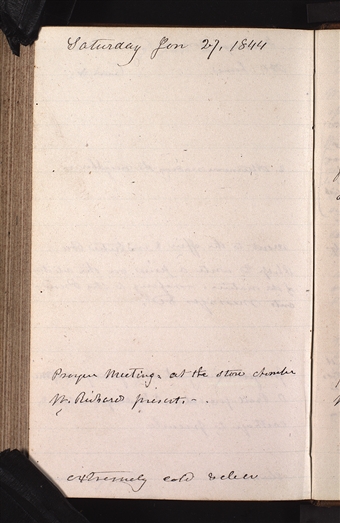 Saturday Jan 27, 1844
Prayer Meeting at the store chamber
W. Richards present. -
extremely cold & clear